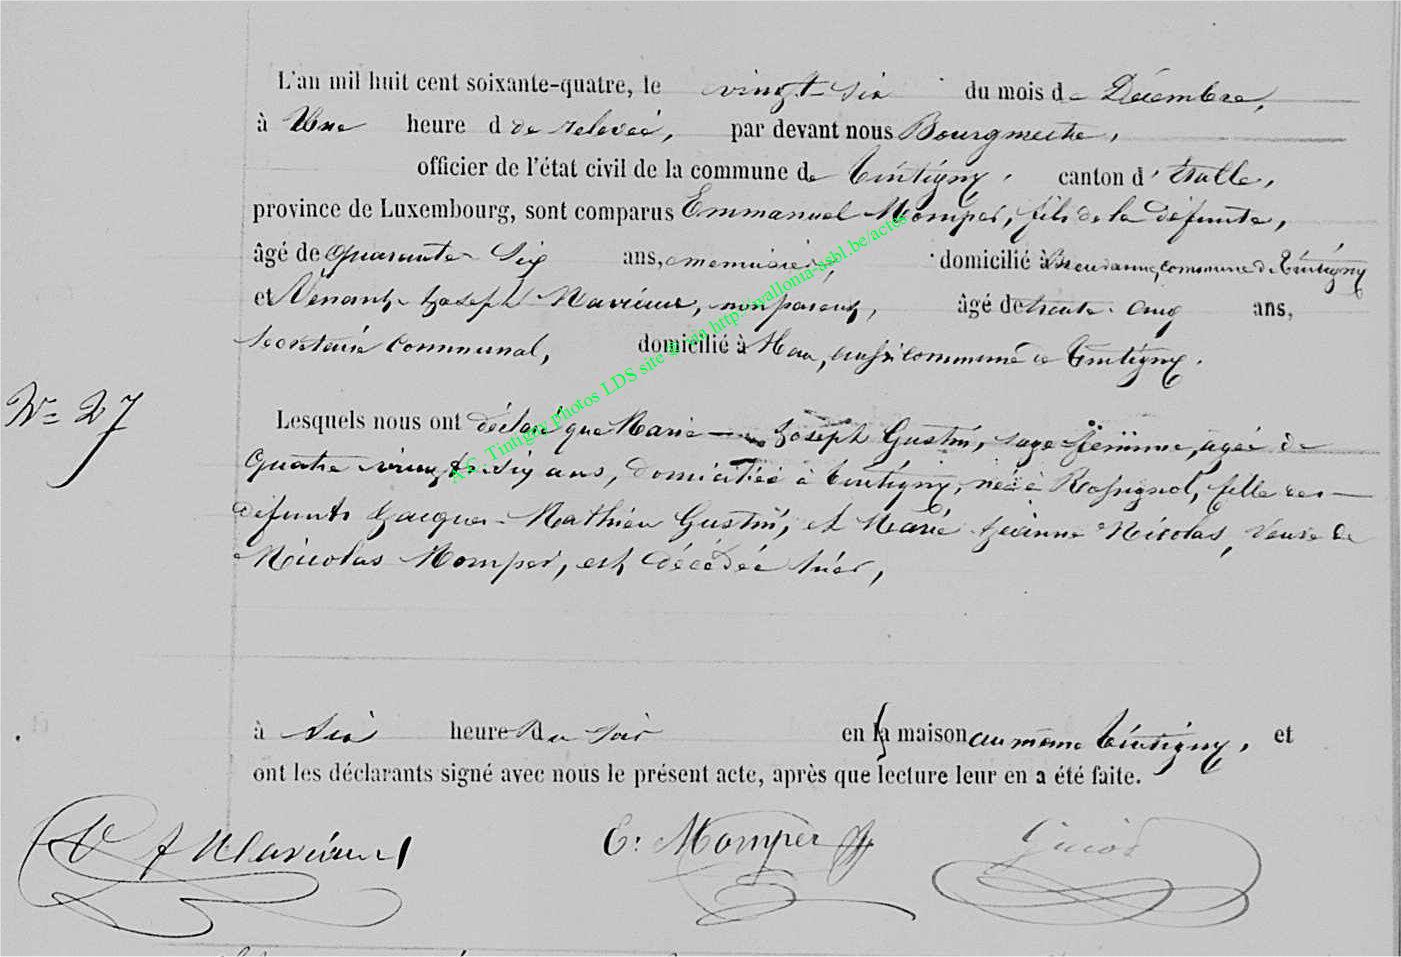 L'an mil huit cent soixante-quatre, le vingt-six du mois de Décembre,
à Une heure d de relevée, par devant nous Bourgmestre,
officier de l'état civil de la commune de Tintigny, canton d'Etalle,
province de Luxembourg, sont comparus Emmanuel Momper, fils de la défunte,
âgé de quarante-six ans, menuisier, domicilié à commune de Tintigny
et Venant-Joseph Mariaux, non parent, âgé de trente-cinq ans,
secrétaire communal, domicilié à Han, aussi commune de Tintigny.
N° 27
Lesquels nous ont déclaré que Marie-Joseph Gustin, sage femme, agée de
quatre vingt-six ans, domiciliée à Tintigny, née à Rossignol, fille des
défunts Jacques-Mathieu Gustin, et Marie Jeanne Nicolas, veuve de
Nicolas Momper, est décédée hier,
à six heure du soir en sa maison au même Tintigny, et
ont les déclarants signé avec nous le présent acte, après que lecture leur en a été faite.
V J Mariaux E. Momper
A.C. Tintigny photos LDS site via http://wallonia-asbl.be/actes